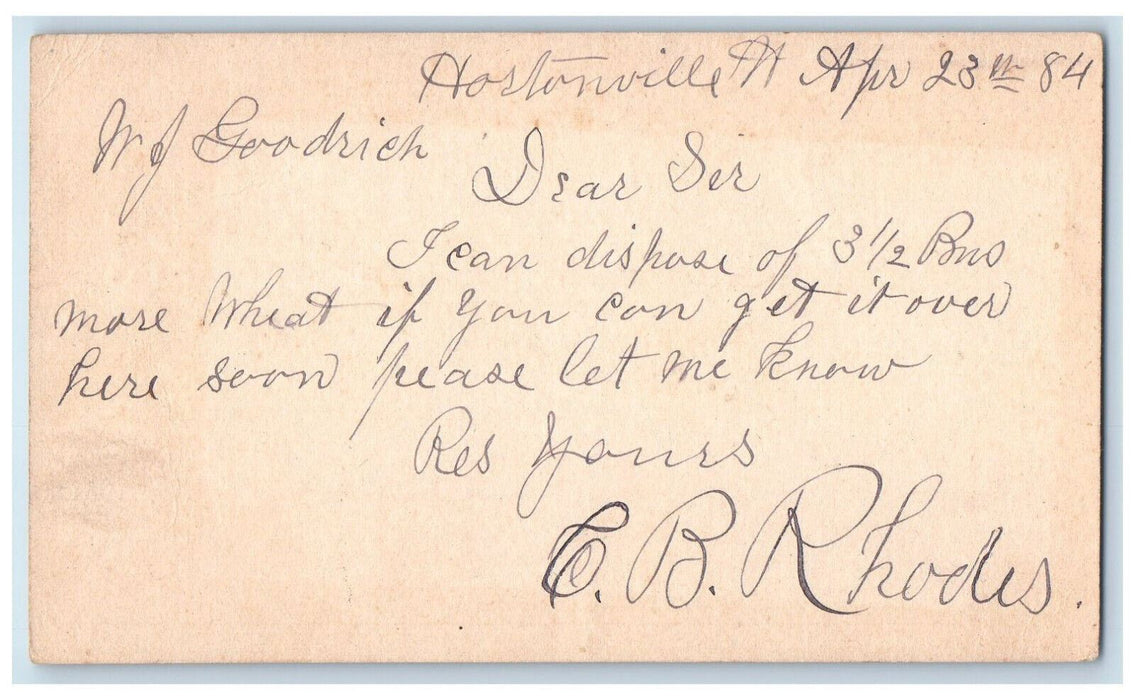 Hortonville Vt Apr 23th 84
W J Goodrich
Dear Sir
I can dispose of 3 1/2 Bus
more Wheat if you can get it over
here soon pease let me know
Res Yours
C. B. Rhodes.